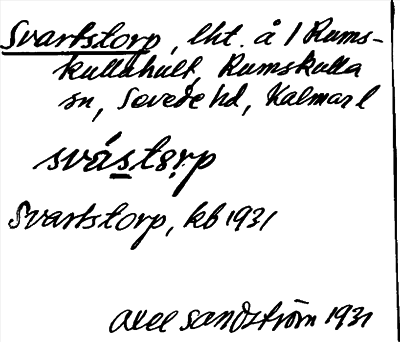 Svartstorp, lht. å 1 Rums-
kullahult, Rumskulla
sn, Sevede hd, Kalmar l
svástorp
Svartstorp, kb 1931
Axel Sandström 1931